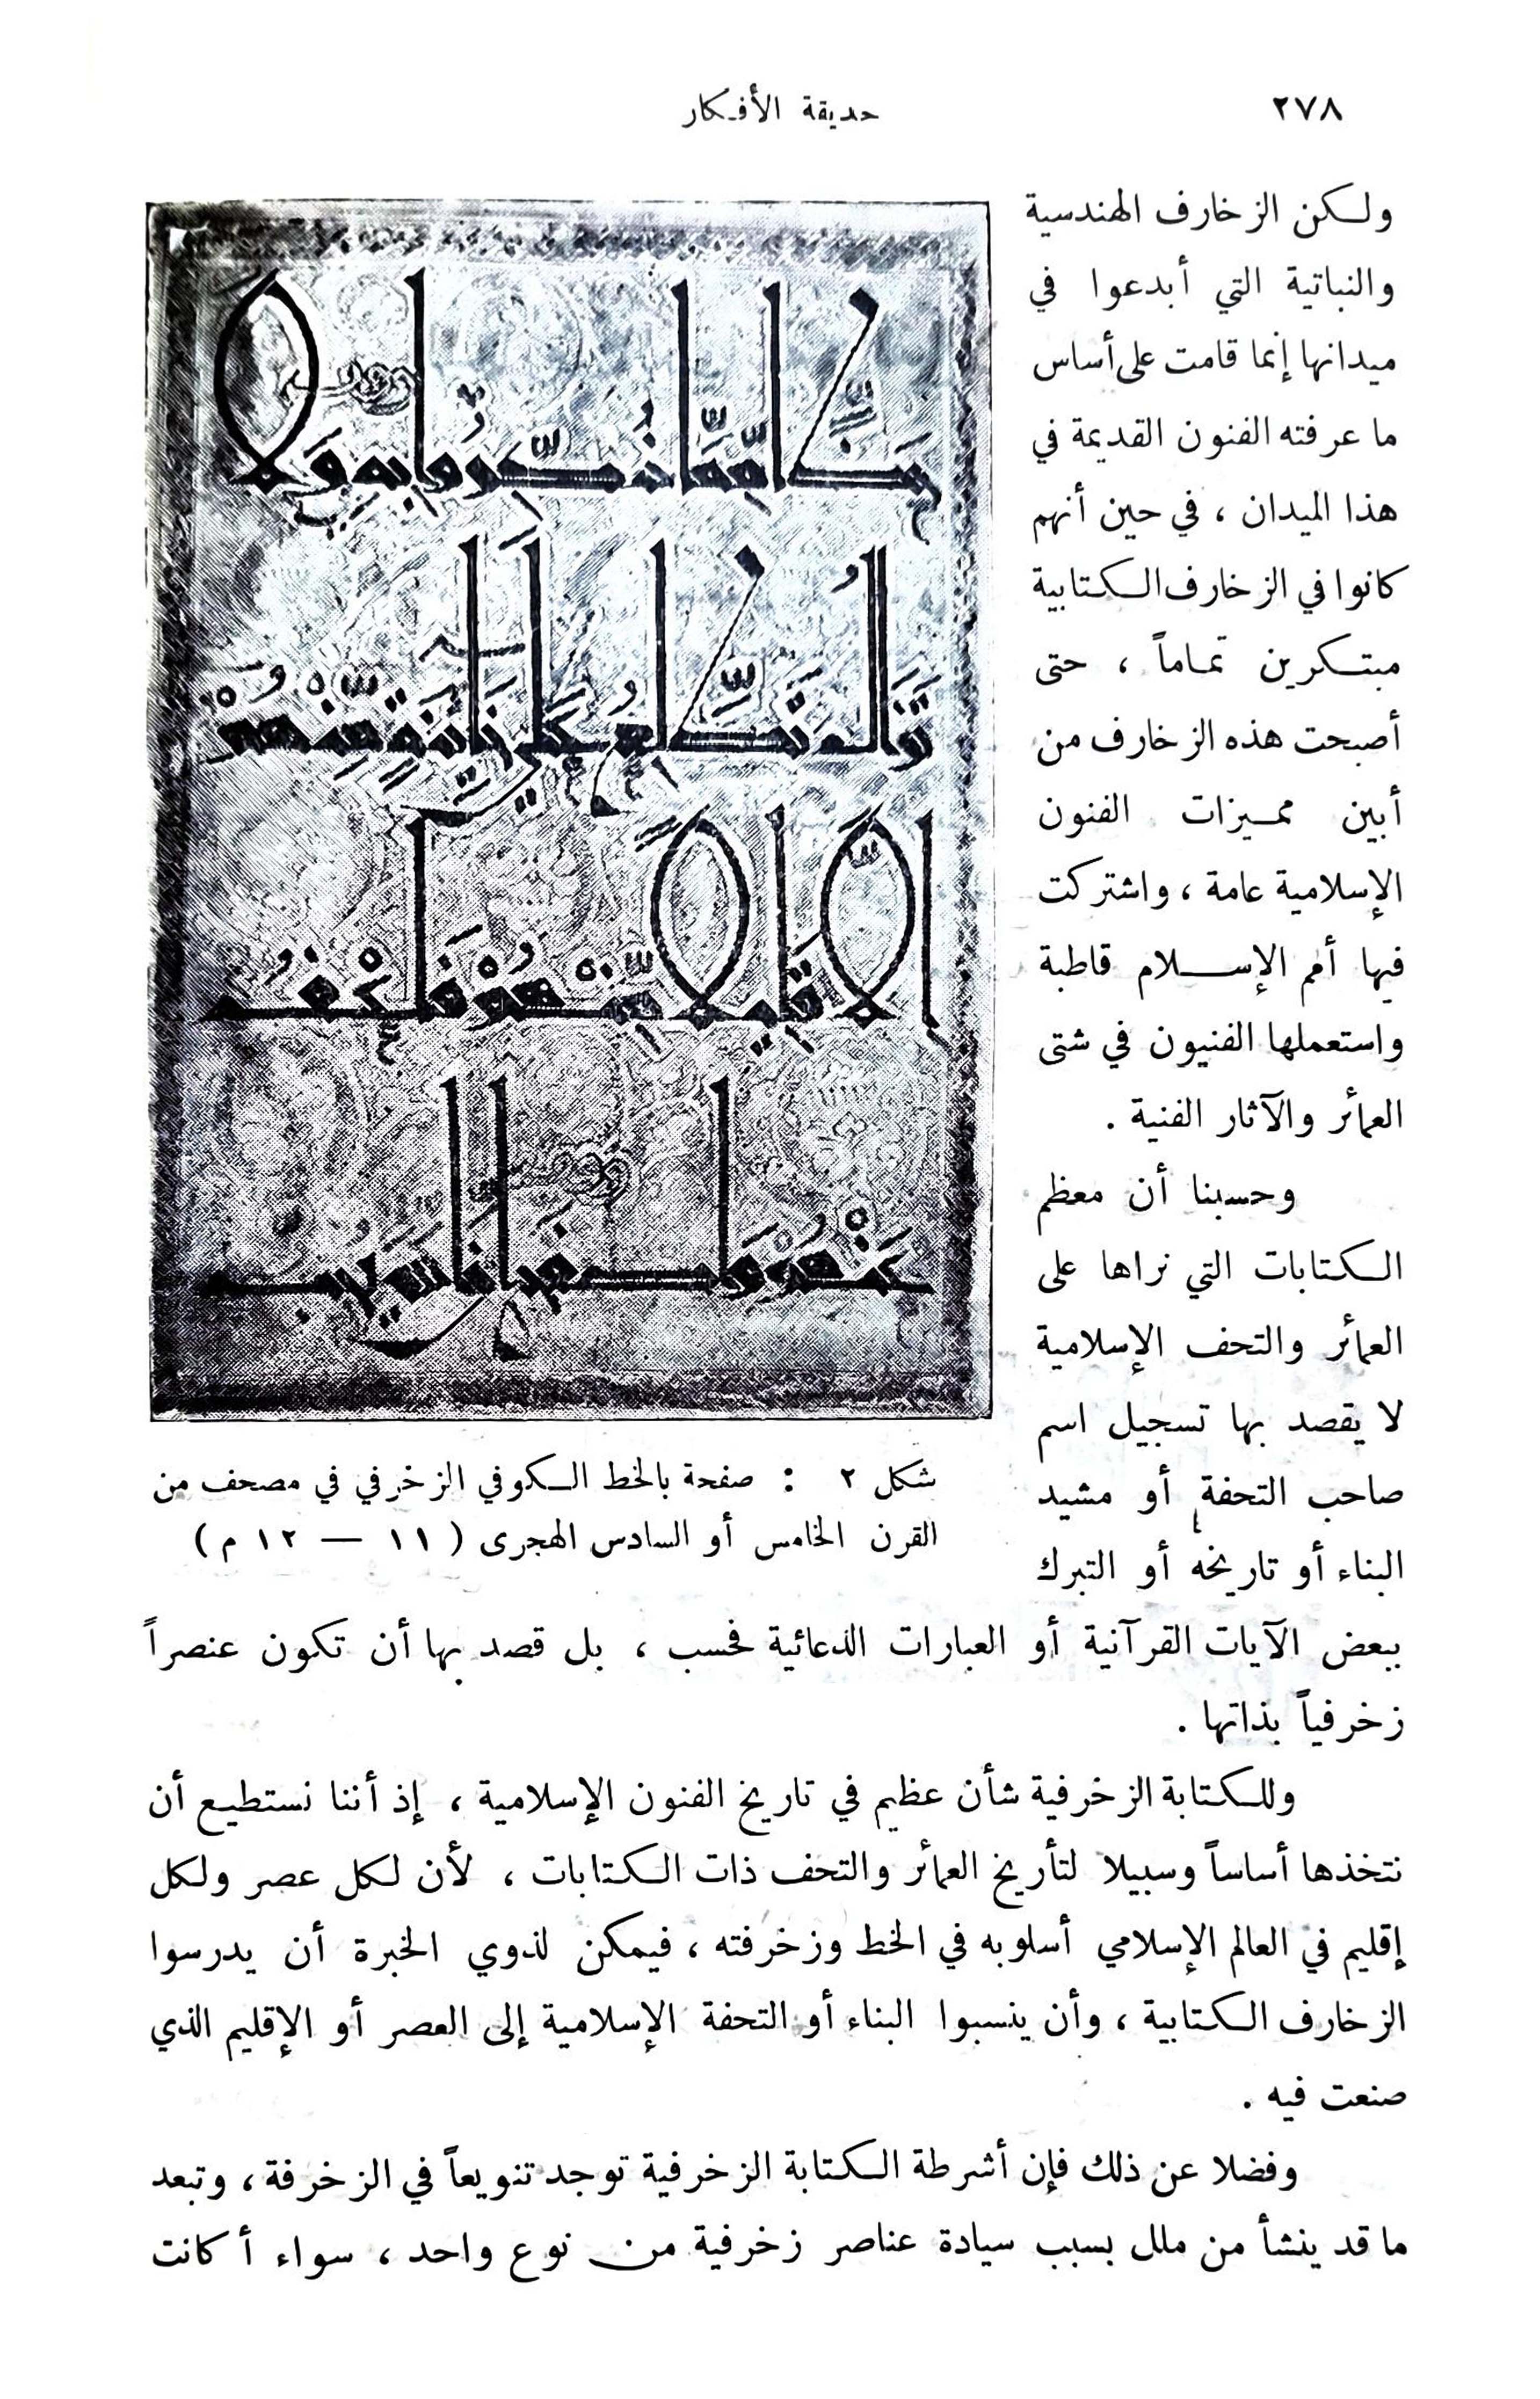 ٢٧٨
حديقة الأفكار
ولكن الزخارف الهندسية
والنباتية التي أبدعوا في
ميدانها إنما قامت على أساس
ما عرفته الفنون القديمة في
هذا الميدان ، في حين أنهم
كانوا في الزخارف الكتابية
مبتكرين تماماً ، حتى
أصبحت هذه الزخارف من
أبين مميزات الفنون
الإسلامية عامة ، واشتركت
فيها أمم الإسلام قاطبة
واستعملها الفنيون في شتى
العمائر والآثار الفنية .
وحسبنا أن معظم
الكتابات التي نراها على
العمائر والتحف الإسلامية
لا يقصد بها تسجيل اسم
صاحب التحفة أو مشيد
البناء أو تاريخه أو التبرك
حظا مما ذكروا به ولا
تزال تطلع على خاينة منهم
إلا قليلا منهم فاعف
عنهم واصفح إن الله يحب
شكل ٢ : صفحة بالخط الكوفي الزخرفي في مصحف من
القرن الخامس أو السادس الهجرى ( ١١ — ١٢ م )
ببعض الآيات القرآنية أو العبارات الدعائية فحسب ، بل قصد بها أن تكون عنصراً
زخرفياً بذاتها .
وللكتابة الزخرفية شأن عظيم في تاريخ الفنون الإسلامية ، إذ أننا نستطيع أن
نتخذها أساساً وسبيلا لتأريخ العمائر والتحف ذات الكتابات ، لأن لكل عصر ولكل
إقليم في العالم الإسلامي أسلوبه في الخط وزخرفته ، فيمكن لذوي الخبرة أن يدرسوا
الزخارف الكتابية ، وأن ينسبوا البناء أو التحفة الإسلامية إلى العصر أو الإقليم الذي
صنعت فيه .
وفضلا عن ذلك فإن أشرطة الكتابة الزخرفية توجد تنويعاً في الزخرفة ، وتبعد
ما قد ينشأ من ملل بسبب سيادة عناصر زخرفية من نوع واحد ، سواء أكانت